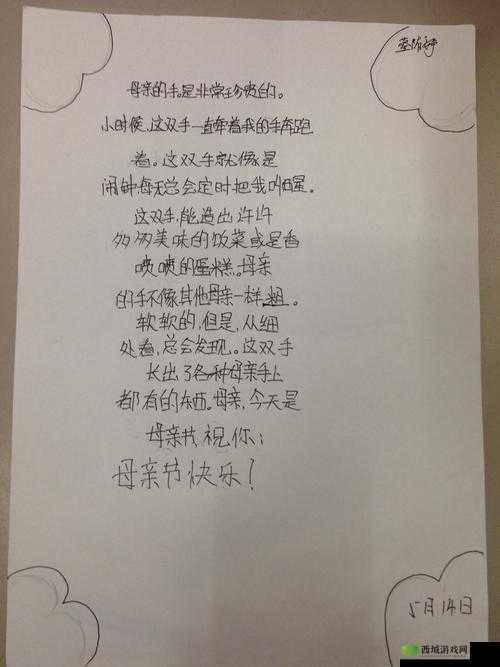 母亲的手。是非常珍贵的。
小时候，这双手一直牵着我的手奔跑
着。这双手就像是
闹钟，每天总会定时把我叫醒。
这双手，能造出许许
多多美味的饭菜或是香
喷喷的蛋糕。母亲
的手不像其他母亲一样粗。
软软的，但是，从细
处看，总会发现。这双手
长出了各种母亲手上
都有的东西。母亲，今天是
母亲节，祝你：
母亲节快乐！
5月14日
西城游戏网